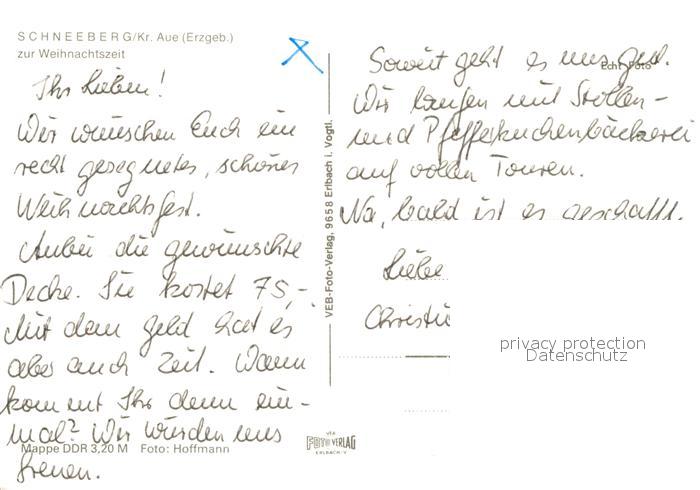 SCHNEEBERG/Kr. Aue (Erzgeb.)
zur Weihnachtszeit
Ihr Lieben!
Wir wünschen Euch ein
recht gesegnetes, schönes
Weihnachtsfest.
Anbei die gewünschte
Decke. Sie kostet 75,-.
Mit dem Geld hat es
aber auch Zeit. Wann
kommt Ihr denn ein-
mal? Wir würden uns
freuen.
Mappe DDR 3,20 M Foto: Hoffmann
VEB-Foto-Verlag, 9658 Erlbach i. Vogtl.
VEB
FOTO VERLAG
ERLBACH/V
Echt Foto
Soweit geht es uns gut.
Wir laufen mit Stollen-
und Pfefferkuchenbäckerei
auf vollen Touren.
Na, bald ist es geschafft.
Liebe
Christi
privacy protection
Datenschutz